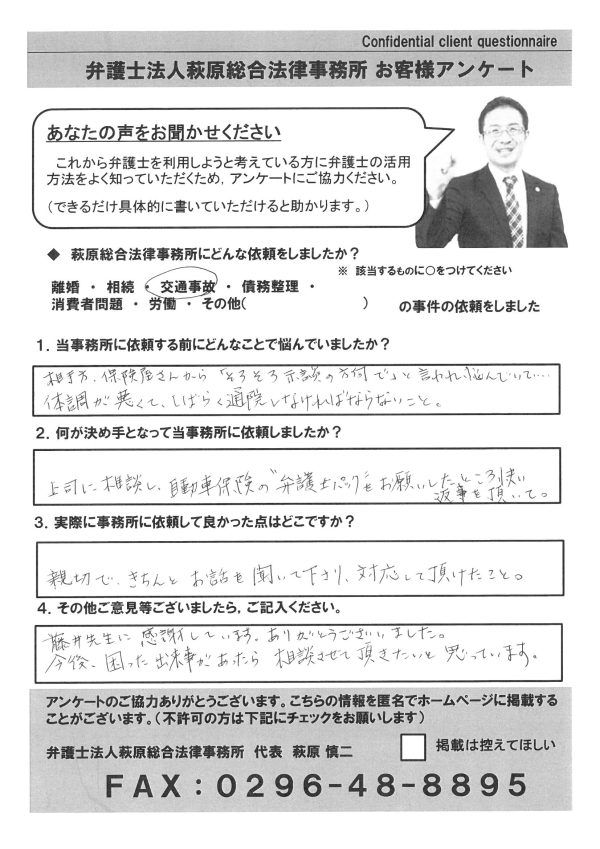 Confidential client questionnaire
弁護士法人萩原総合法律事務所 お客様アンケート
あなたの声をお聞かせください
これから弁護士を利用しようと考えている方に弁護士の活用
方法をよく知っていただくため，アンケートにご協力ください。
（できるだけ具体的に書いていただけると助かります。）
◆ 萩原総合法律事務所にどんな依頼をしましたか？
※ 該当するものに○をつけてください
離婚 ・ 相続 ・ 交通事故 ・ 債務整理 ・
消費者問題 ・ 労働 ・ その他( ) の事件の依頼をしました
１．当事務所に依頼する前にどんなことで悩んでいましたか？
相手方、保険屋さんから「そろそろ示談の方向で」と言われ悩んでいて…
体調が悪くて、しばらく通院しなければならないこと。
２．何が決め手となって当事務所に依頼しましたか？
上司に相談し、自動車保険の“弁護士パック”をお願いしたところ速い
返事を頂いて。
３．実際に事務所に依頼して良かった点はどこですか？
親切で、きちんとお話を聞いて下さり、対応して頂けたこと。
４．その他ご意見等ございましたら，ご記入ください。
藤井先生に感謝しています。ありがとうございました。
今後、困った出来事があったら相談させて頂きたいと思っています。
アンケートのご協力ありがとうございます。こちらの情報を匿名でホームページに掲載する
ことがございます。（不許可の方は下記にチェックをお願いします）
弁護士法人萩原総合法律事務所 代表 萩原 慎二
掲載は控えてほしい
ＦＡＸ：０２９６-４８-８８９５